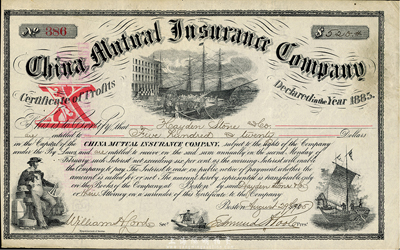 No 386
$520.00
China Mutual Insurance Company
Certificate of Profits
Declared in the Year 1885.
This is to Certify, that Hayden Stone & Co.
Five Hundred & twenty Dollars
in the Capital of the CHINA MUTUAL INSURANCE COMPANY, subject to the Rights of the Company
under its By Laws and entitled to receive on the said sum annually on the second Monday of
February such Interest not exceeding six per cent as the annual Interest will enable
the Company to pay. The Interest to cease on public notice of payment whether the
amount is called for or not. The amount hereby represented is transferable only
on the Books of the Company at Boston by said Hayden Stone & Co
or their Attorney on a surrender of this Certificate to the Company.
Boston August